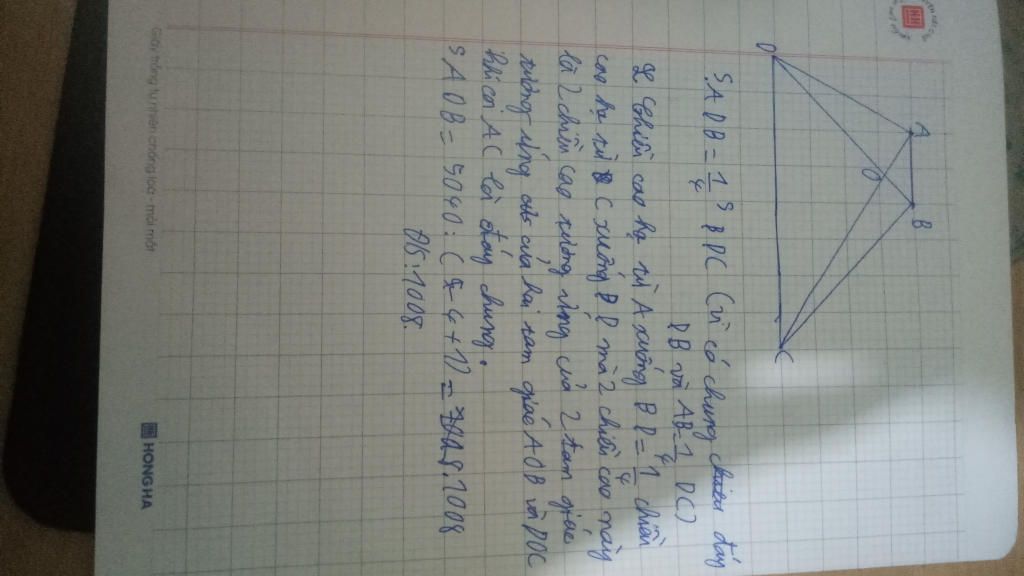 D
A
B
O
C
SADB = 1/4 SBDC (vì có chung đáy
DB và AB = 1/4 DC)
chiều cao hạ từ A xuống BD = 1/4 chiều
cao hạ từ C xuống BD mà 2 chiều cao này
là 2 chiều cao tương ứng của 2 tam giác
tương ứng của hai tam giác AOB và DOC
khi coi AC là đáy chung.
SAOB = 5040 : ( 4 + 1) = 1008
ĐS: 1008.
Giấy trắng tự nhiên chống lóa - mỏi mắt
HONG HA